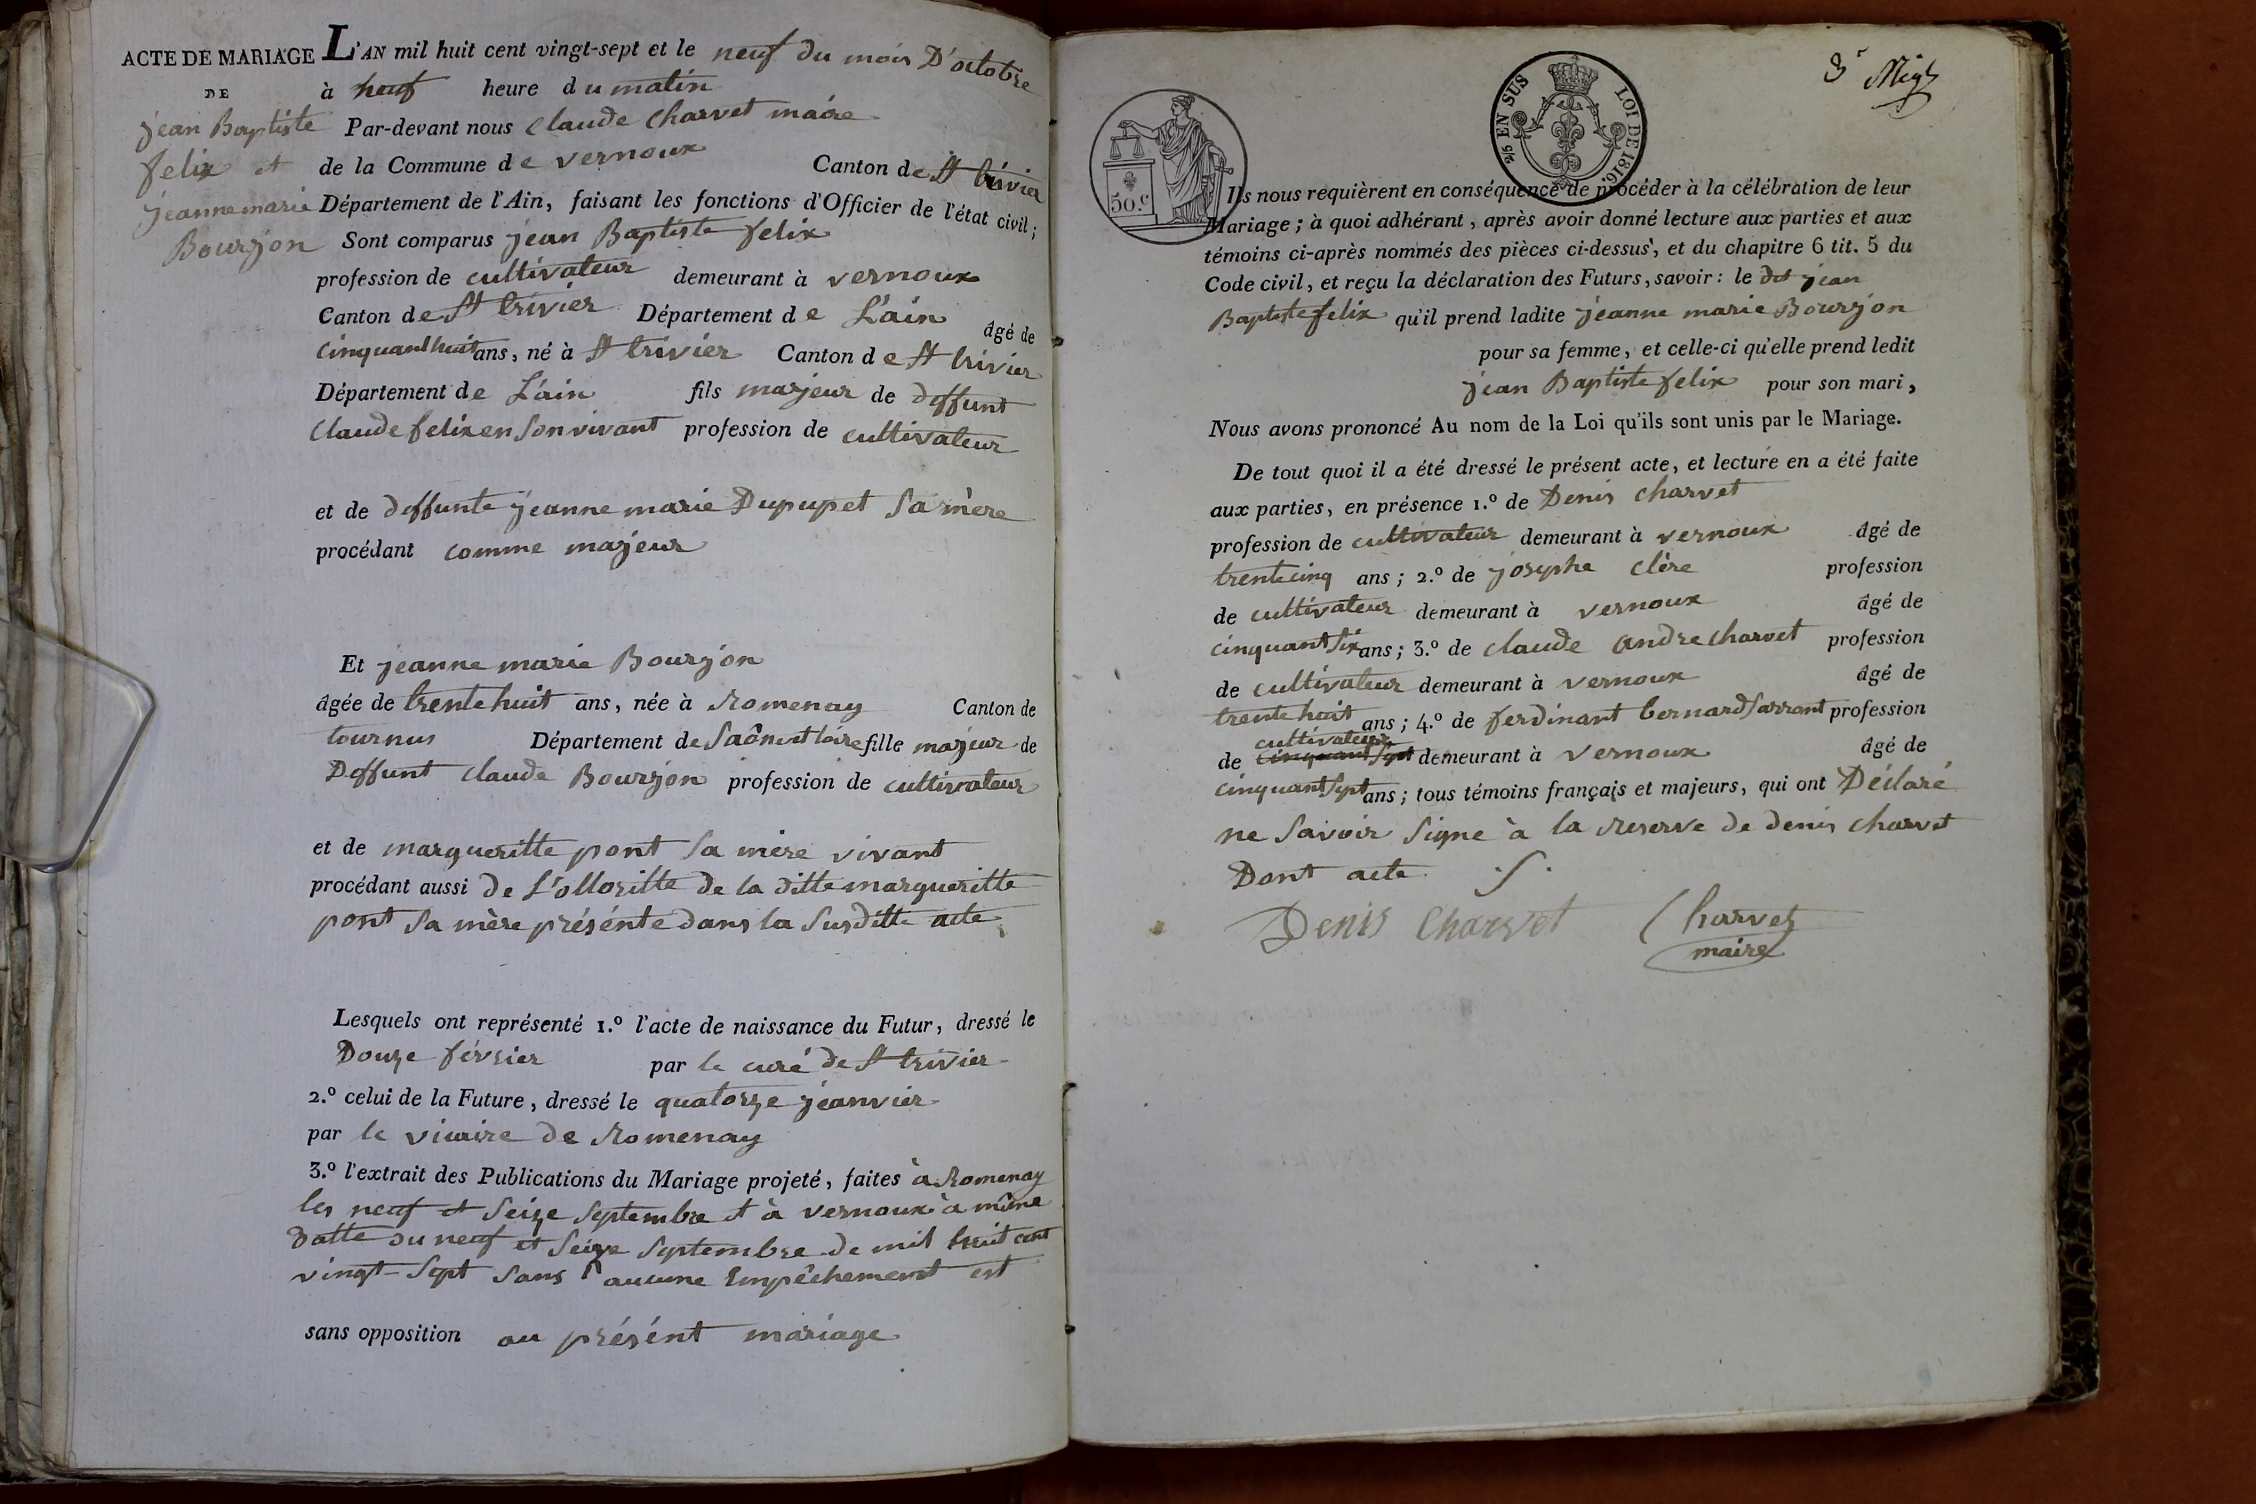 ACTE DE MARIAGE
DE
jean Baptiste
felix et
jeanne marie
Bourjon
L'AN mil huit cent vingt-sept et le neuf du mois D'octobre
à neuf heure du matin
Par-devant nous Claude Charvet maire
de la Commune de vernoux Canton de St trivier
Département de l'Ain, faisant les fonctions d'Officier de l'état civil;
Sont comparus jean Baptiste felix
profession de cultivateur demeurant à vernoux
Canton de St trivier Département de L'ain âgé de
cinquant huit ans, né à St trivier Canton de St trivier
Département de L'ain fils majeur de deffunt
Claude felix en son vivant profession de cultivateur
et de deffunte jeanne marie Dupupet sa mère
procédant comme majeur
Et jeanne marie Bourjon
âgée de trente huit ans, née à Romenay Canton de
tournus Département de Saône et loire fille majeur de
Deffunt Claude Bourjon profession de cultivateur
et de margueritte pont sa mère vivant
procédant aussi de L'ottoritte de la ditte margueritte
pont sa mère présénte dans la susditte acte
Lesquels ont représenté 1.º l'acte de naissance du Futur, dressé le
Douze février par le curé de St trivier
2.º celui de la Future, dressé le quatorze jeanvier
par le vicaire de Romenay
3.º l'extrait des Publications du Mariage projeté, faites à Romenay
les neuf et seize septembre et à vernoux à même
datte du neuf et seize septembre de mil huit cent
vingt-sept sans aucune Empêchement est
sans opposition au présént mariage
50.c
2/5 EN SUS LOI DE 1816.
Ils nous requièrent en conséquence de procéder à la célébration de leur
Mariage; à quoi adhérant, après avoir donné lecture aux parties et aux
témoins ci-après nommés des pièces ci-dessus, et du chapitre 6 tit. 5 du
Code civil, et reçu la déclaration des Futurs, savoir: le dit jean
Baptiste felix qu'il prend ladite jeanne marie Bourjon
pour sa femme, et celle-ci qu'elle prend ledit
jean Baptiste felix pour son mari,
Nous avons prononcé Au nom de la Loi qu'ils sont unis par le Mariage.
De tout quoi il a été dressé le présent acte, et lecture en a été faite
aux parties, en présence 1.º de Denis Charvet
profession de cultivateur demeurant à vernoux âgé de
trente cinq ans; 2.º de josephe Clère profession
de cultivateur demeurant à vernoux âgé de
cinquant six ans; 3.º de Claude andre Charvet profession
de cultivateur demeurant à vernoux âgé de
trente huit ans; 4.º de ferdinant bernard sarront profession
cultivateur
de cinquant sept demeurant à vernoux âgé de
cinquant sept ans; tous témoins français et majeurs, qui ont Déclaré
ne savoir signe à la reserve de denis Charvet
Dont acte.
Denis Charvet Charvet
maire